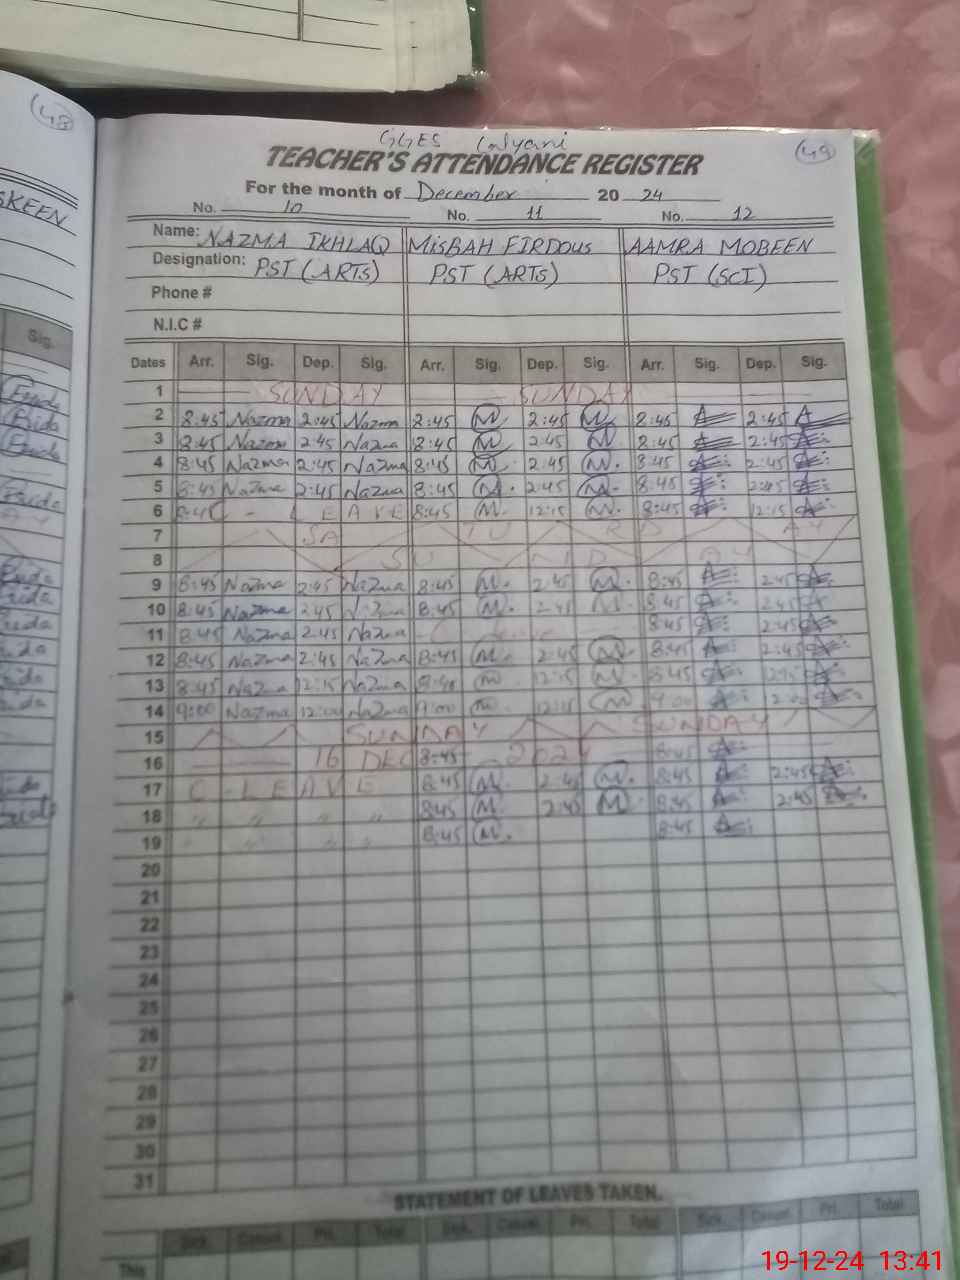 48
GGES
49
TEACHER'S ATTENDANCE REGISTER
For the month of December 20 24
No. 10 No. 11 No. 12
SKEEN
Name: NAZMA IKHLAQ MISBAH FIRDOUS AAMRA MOBEEN
Designation: PST (ARTs) PST (ARTs) PST (SCI)
Phone #
N.I.C #
Sig.
Dates Arr. Sig. Dep. Sig. Arr. Sig. Dep. Sig. Arr. Sig. Dep. Sig.
1 SUNDAY SUNDAY
2 8:45 Nazma 2:45 Nazma 8:45 M 2:45 M 8:45 2:45
3 8:45 Nazma 2:45 Nazma 8:45 M 2:45 M 8:45 2:45
4 8:45 Nazma 2:45 Nazma 8:45 M. 2:45 M. 8:45 2:45
5 8:45 Nazma 2:45 Nazma 8:45 M. 2:45 M. 8:45 2:45
6 8:45 LEAVE 8:45 M. 12:15 M. 8:45 12:15
7 SA TU R D AY
8 SU N D AY
9 8:45 Nazma 2:45 Nazma 8:45 M. 2:45 M. 8:45 2:45
10 8:45 Nazma 2:45 Nazma 8:45 M. 2:45 M. 8:45 2:45
11 8:45 Nazma 2:45 Nazma 8:45 2:45
12 8:45 Nazma 2:45 Nazma 8:45 M. 2:45 M. 8:45 2:45
13 8:45 Nazma 12:15 Nazma M 12:15 M. 8:45
14 9:00 Nazma 12:00 Nazma 9:00 M 9:00
15 SUNDAY SUNDAY
16 16 DEC 8:45 2024 8:45
17 C-LEAVE 8:45 M. 2:45 M. 8:45 2:45
18 " " " " 8:45 M. 2:45 M. 8:45 2:45
19 " " " " 8:45 M. 8:45
20
21
22
23
24
25
26
27
28
29
30
31
STATEMENT OF LEAVES TAKEN.
Sick. Casual. Pri. Total Sick. Casual. Pri. Total Sick. Casual. Pri. Total
This
19-12-24 13:41